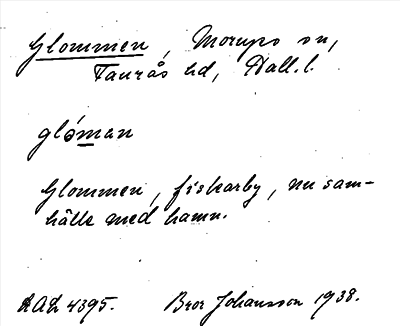 Glommen, Morups sn,
Faurås hd, Hall. l.
glóman
Glommen, fiskarby, nu sam-
hälle med hamn.
LAL 4395. Bror Johansson 1938.